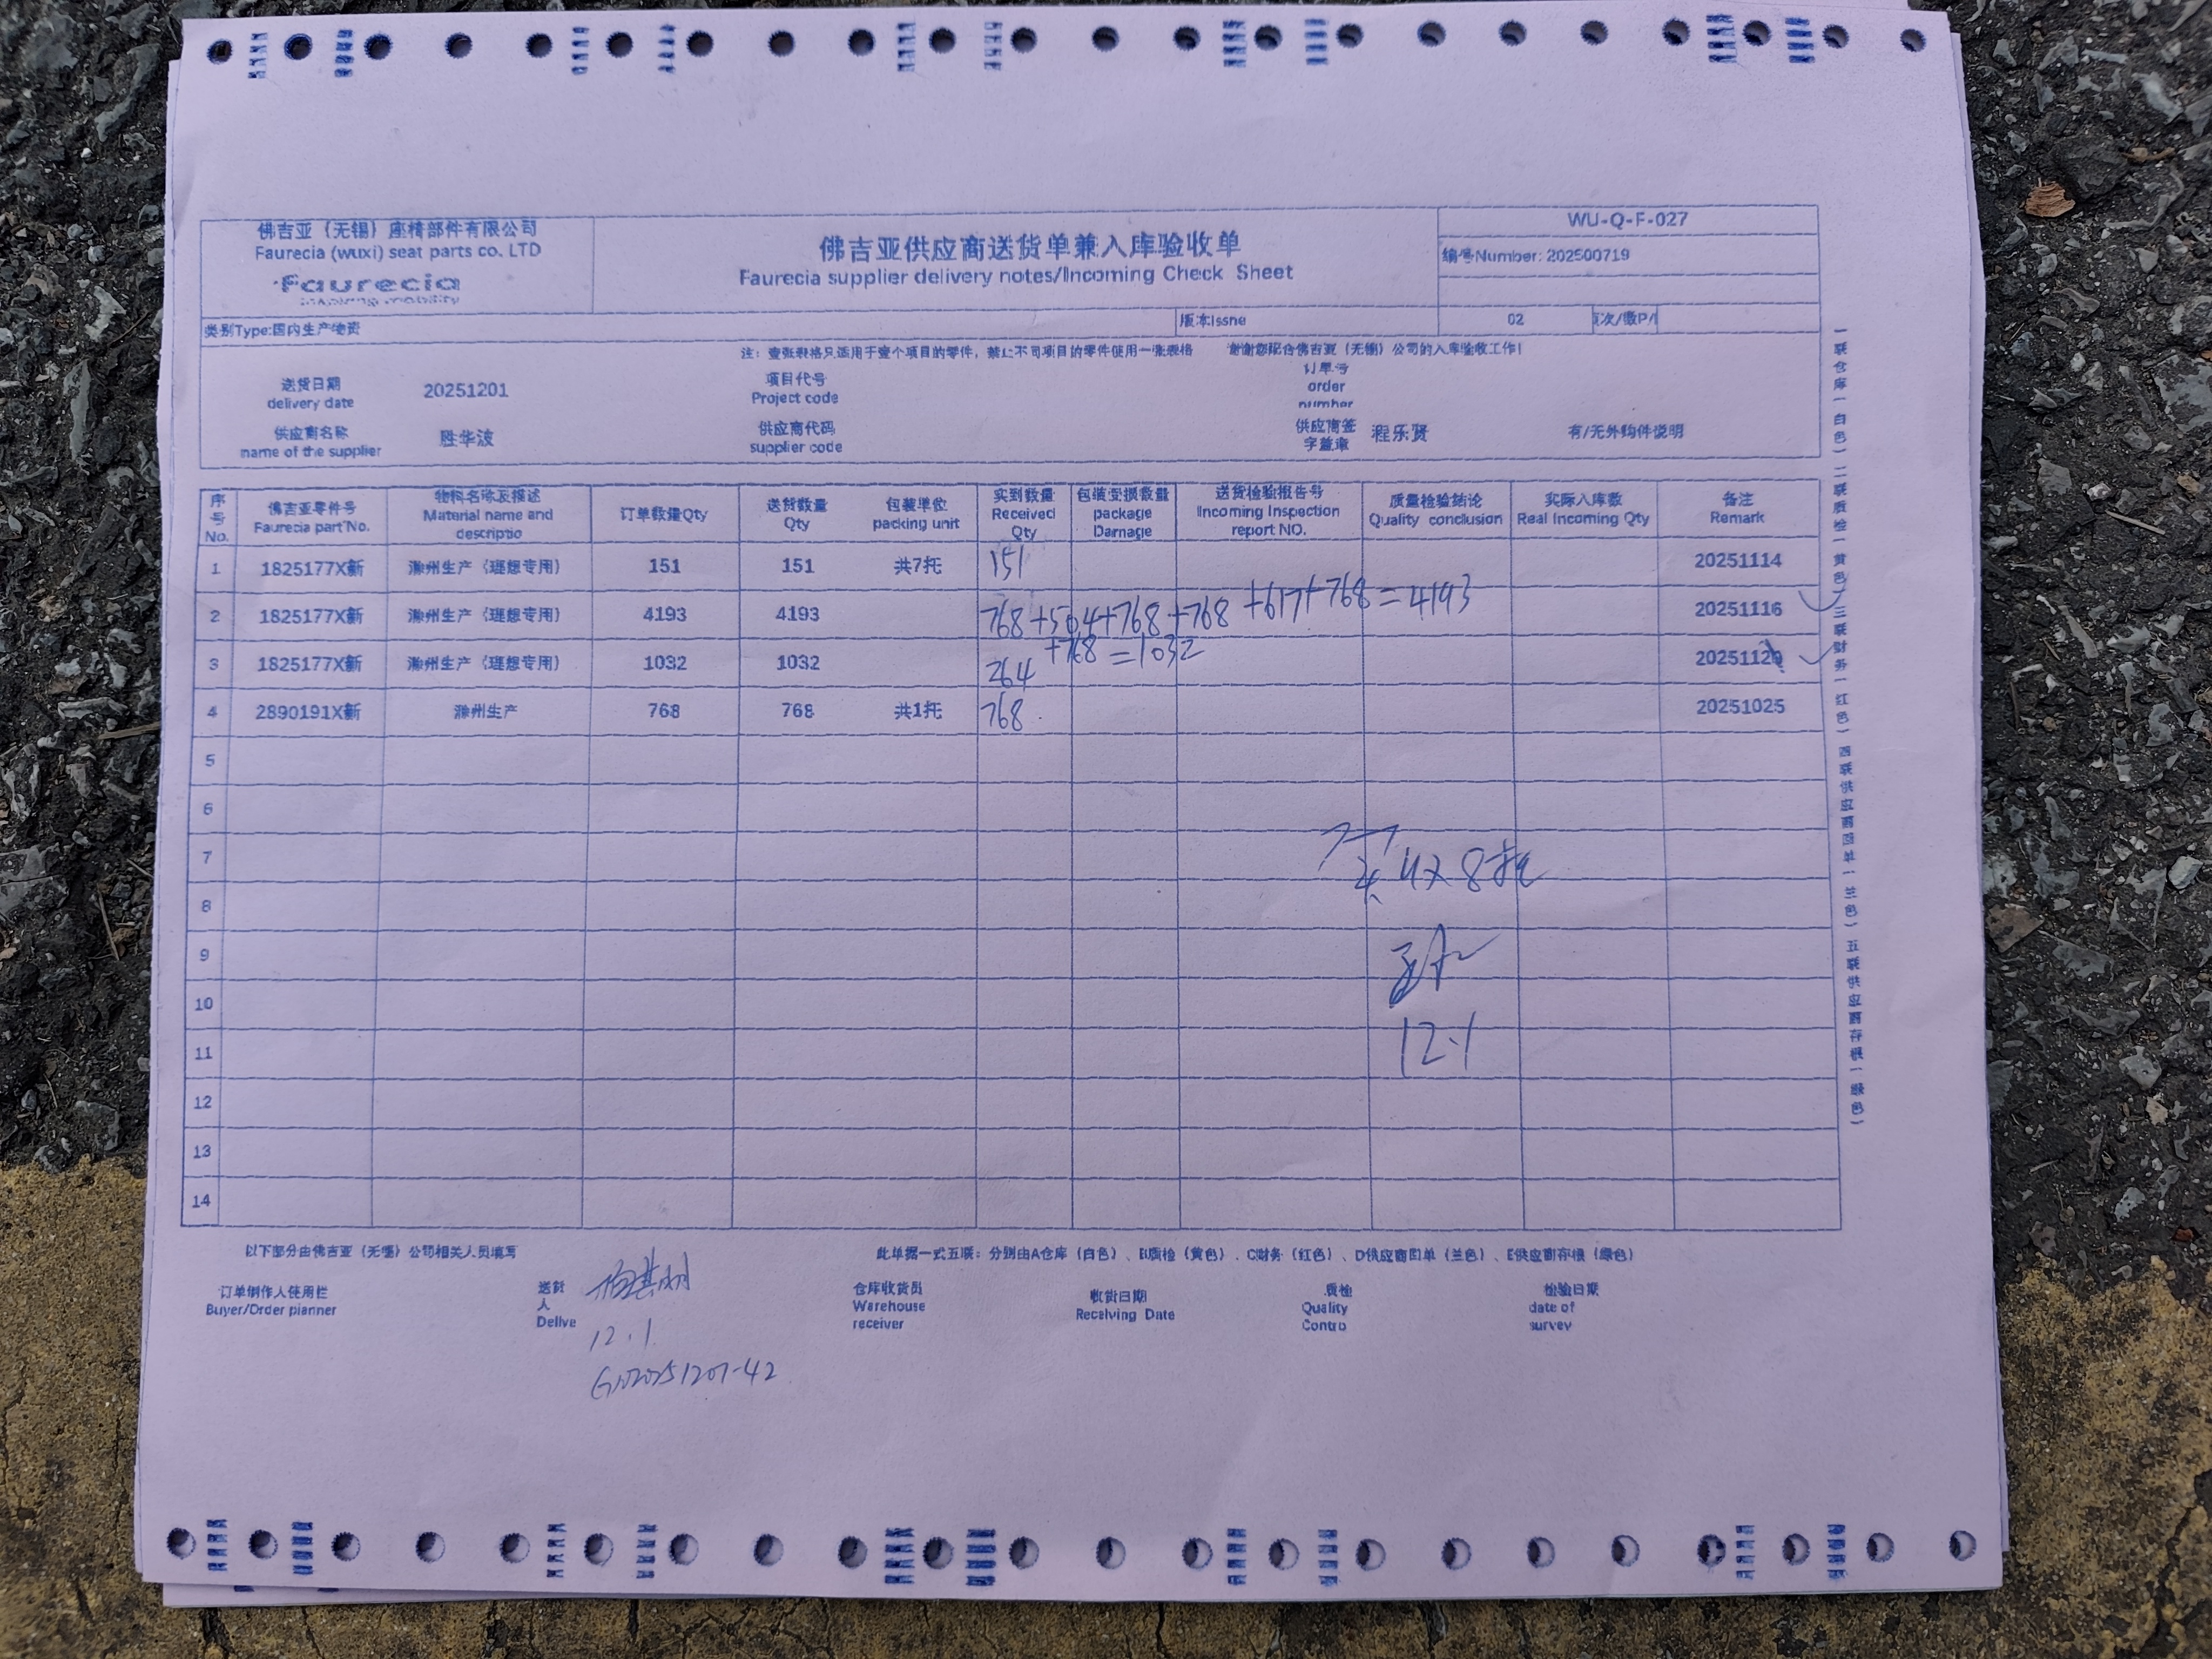 佛吉亚（无锡）座椅部件有限公司
Faurecia (wuxi) seat parts co. LTD
faurecia
inspiring mobility
佛吉亚供应商送货单兼入库验收单
Faurecia supplier delivery notes/Incoming Check Sheet
WU-Q-F-027
编号Number: 202500719
类别Type:国内生产物资
版本Issne
02
页次/数P/
注：壹张表格只适用于壹个项目的零件，禁止不同项目的零件使用一张表格 谢谢您配合佛吉亚（无锡）公司的入库验收工作！
送货日期
delivery date
20251201
项目代号
Project code
订单号
order
number
供应商名称
name of the supplier
胜华波
供应商代码
supplier code
供应商签
字盖章
程乐贤
有/无外购件说明
序号No. 佛吉亚零件号 Faurecia part No. 物料名称及描述 Material name and descriptio 订单数量Qty 送货数量 Qty 包装单位 packing unit 实到数量 Received Qty 包装受损数量 package Darnage 送货检验报告号 Incoming Inspection report NO. 质量检验结论 Quality conclusion 实际入库数 Real Incoming Qty 备注 Remark
1 1825177X新 滁州生产（理想专用） 151 151 共7托 151 20251114
2 1825177X新 滁州生产（理想专用） 4193 4193 768+504+768+768+617+768=4193 20251116
3 1825177X新 滁州生产（理想专用） 1032 1032 264+768=1032 20251120
4 2890191X新 滁州生产 768 768 共1托 768 20251025
5
6
7
8
9
10
11
12
13
14
8托
12.1
以下部分由佛吉亚（无锡）公司相关人员填写
此单据一式五联：分别由A仓库（白色）、B质检（黄色）、C财务（红色）、D供应商回单（兰色）、E供应商存根（绿色）
订单制作人使用栏
Buyer/Order planner
送货
人
Delive
12.1
仓库收货员
Warehouse
receiver
收货日期
Receiving Date
质检
Quality
Contro
检验日期
date of
survey
一联仓库（白色）二联质检（黄色）三联财务（红色）四联供应商回单（兰色）五联供应商存根（绿色）